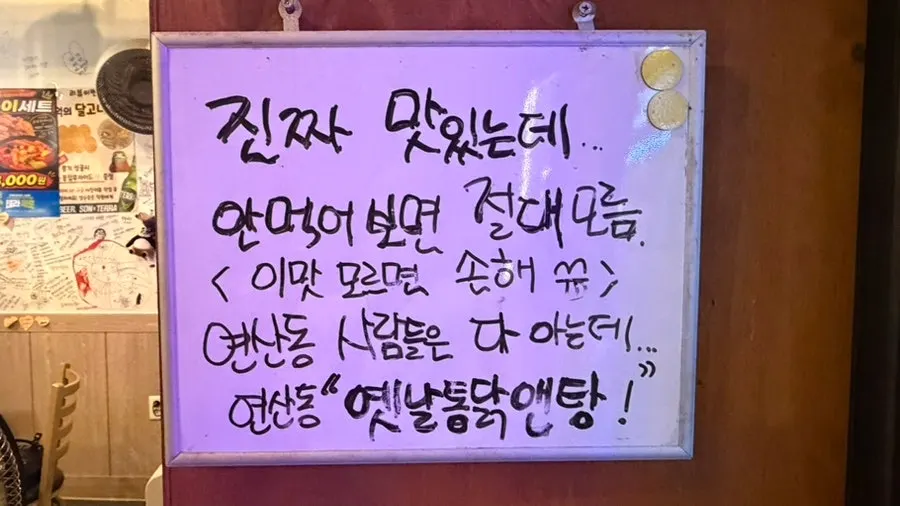 진짜 맛있는데...
안먹어 보면 절대 모름.
< 이맛 모르면 손해 ㅠㅠ >
연산동 사람들은 다 아는데...
연산동 “옛날통닭앤탕!”
이세트
,000원
BEER. SON+TERRA